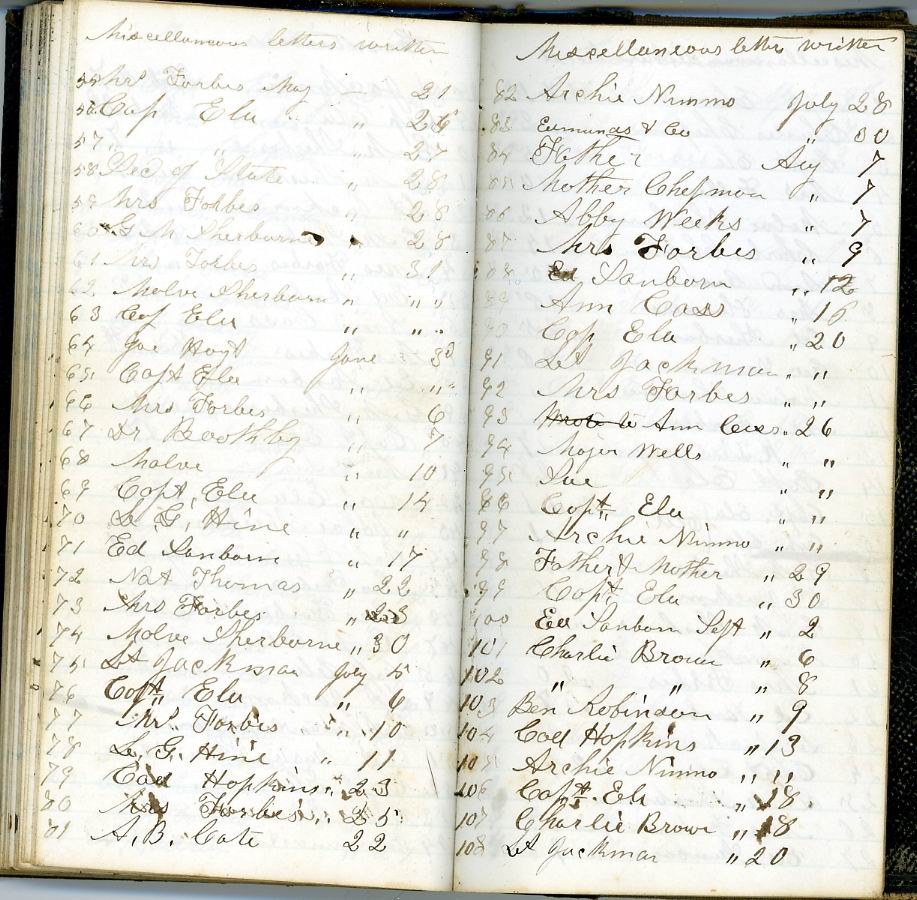 Miscellaneous letters written
55 Mrs Forbes May 21
56 Cap Elu " 26
57 " " " 27
58 Sec of State " 28
59 Mrs Forbes " 28
60 G M Sherburne " 28
61 Mrs Forbes " 31
62 Molve Sherburn " " "
63 Cap Elu " " "
64 Joe Hoyt June 3d
65 Capt Elu " " "
66 Mrs Forbes " 6
67 Dr Boothby " 7
68 Molve " 10
69 Capt, Elu " 14
70 L. G, Hine " "
71 Ed Sanborn " 17
72 Nat Thomas " 22
73 Mrs Forbes " 23
74 Molve Sherburne " 30
75 Lt Jackman July 5
76 Capt Elu " 6
77 Mrs Forbes " 10
78 L. G. Hine " 11
79 Cod Hopkins " 23
80 Mrs Forbes " 35
81 A. B. Cate 22
Miscellaneous letter written
82 Archie Nimmo July 28
83 Edmunds & Co " 30
84 Father Aug 7
85 Mother Chapman " 7
86 Abby Weeks " 7
87 Mrs Forbes " 9
88 Ed Sanborn " 12
89 Ann Cass " 16
90 Cap Elu " 20
91 Lt Jackman " "
92 Mrs Forbes " "
93 Wrote to Ann Cass " 26
94 Major Wells " "
95 Sue " "
96 Capt Elu " "
97 Archie Nimmo " "
98 Father & Mother " 29
99 Capt Elu " 30
100 Ed Sanborn Sept " 2
101 Charlie Brown " 6
102 " " " 8
103 Ben Robinson " 9
104 Cod Hopkins " 13
105 Archie Nimmo " "
106 Capt. Elu " 18
107 Charlie Brown " 18
108 Lt Jackman " 20